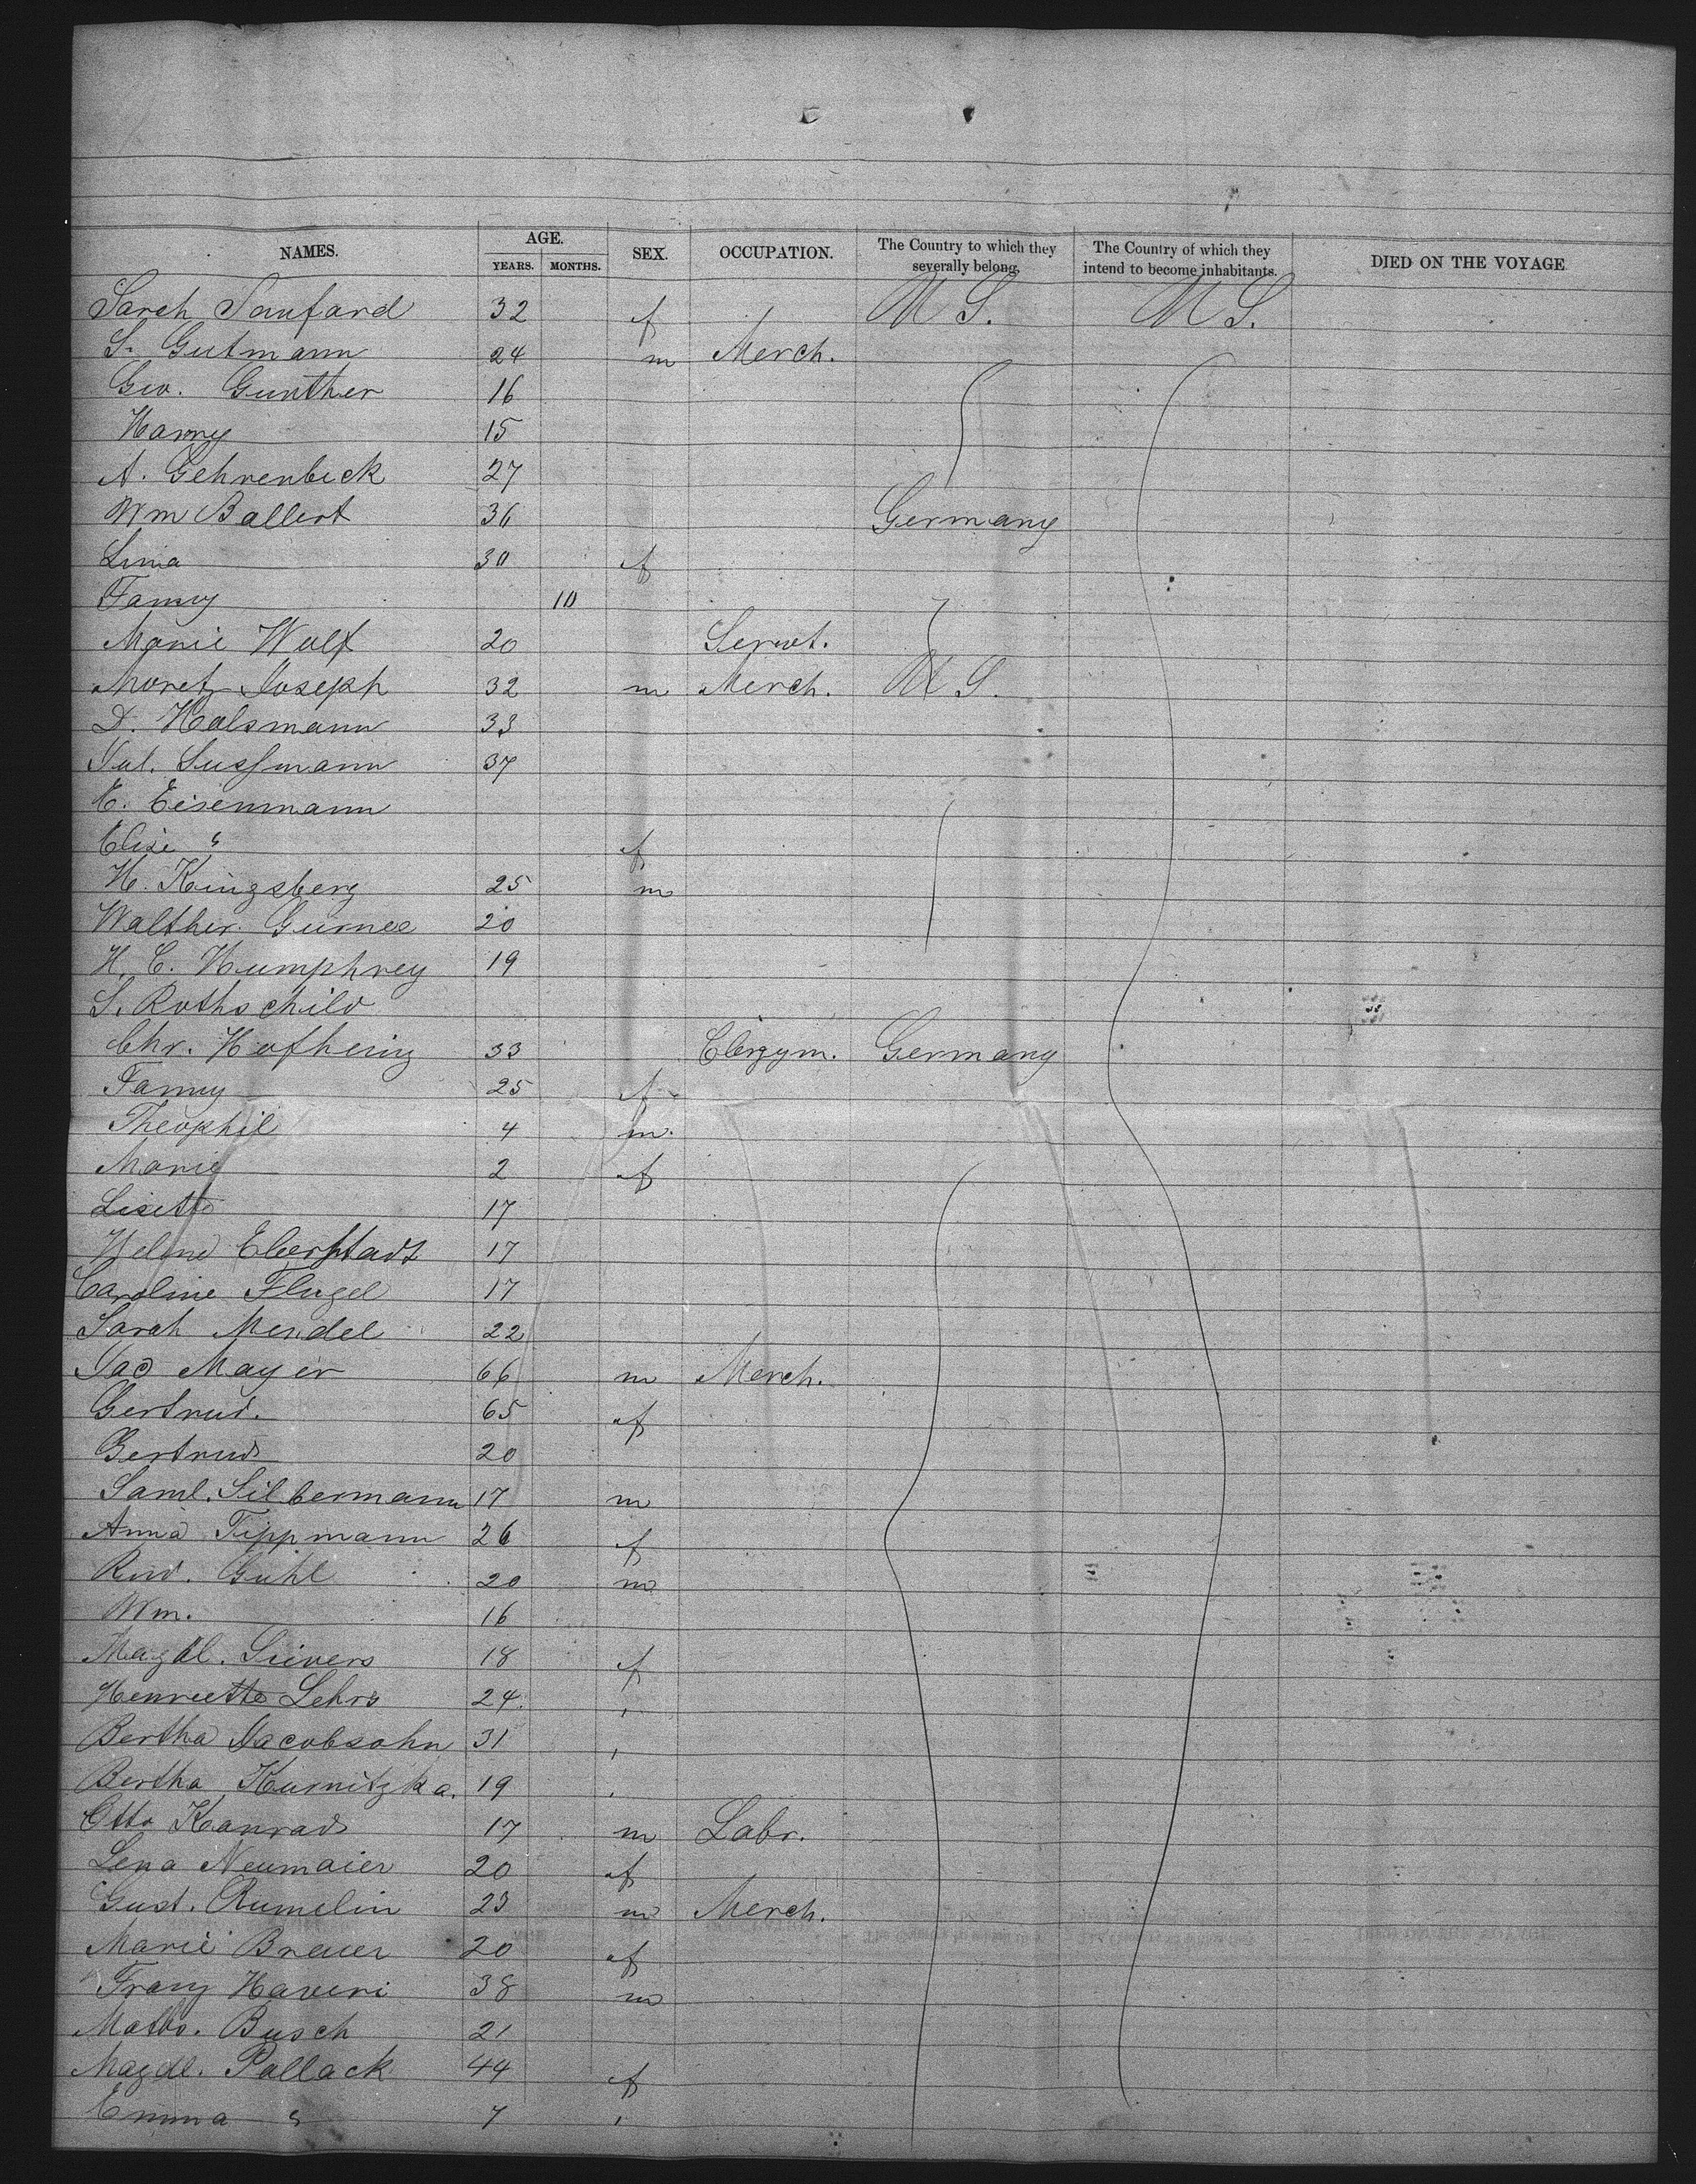 NAMES. AGE. SEX. OCCUPATION. The Country to which they severally belong. The Country of which they intend to become inhabitants. DIED ON THE VOYAGE
YEARS. MONTHS.
Sarah Sanford 32 f U S. U S.
S. Gutmann 24 m Merch.
Geo. Gunther 16
Harry 15
A. Gehrenbeck 27
Wm Ballert 36 Germany
Lina 30 f
Fanny 10
Marie Wulf 20 Servt.
Moretz Joseph 32 m Merch. U S.
D. Halsmann 33
Jul. Sussmann 37
E. Eisenmann
Elise " f
H. Kingsberg 25 m
Walther Gurnee 20
H. C. Humphrey 19
S. Rothschild
Chr. Hofheinz 33 Clergym. Germany
Fanny 25 f
Theophil 4 m
Marie 2 f
Lisette 17
Helene Eberstadt 17
Caroline Flugel 17
Sarah Mendel 22
Jac Mayer 66 m Merch.
Gertrud. 65 f
Gertrud 20
Saml. Silbermann 17 m
Anna Tippmann 26 f
Rud. Guhl 20 m
Wm. 16
Magdl. Sievers 18 f
Henriette Lehrs 24 "
Bertha Jacobsohn 31 "
Bertha Kurnitzka. 19 "
Otto Konrad 17 m Labr.
Lena Neumaier 20 f
Gust. Rumelin 23 m Merch.
Marie Breuer 20 f
Franz Haveri 38 m
Maths. Busch 21
Magdl. Pollack 44 f
Emma " 7 "